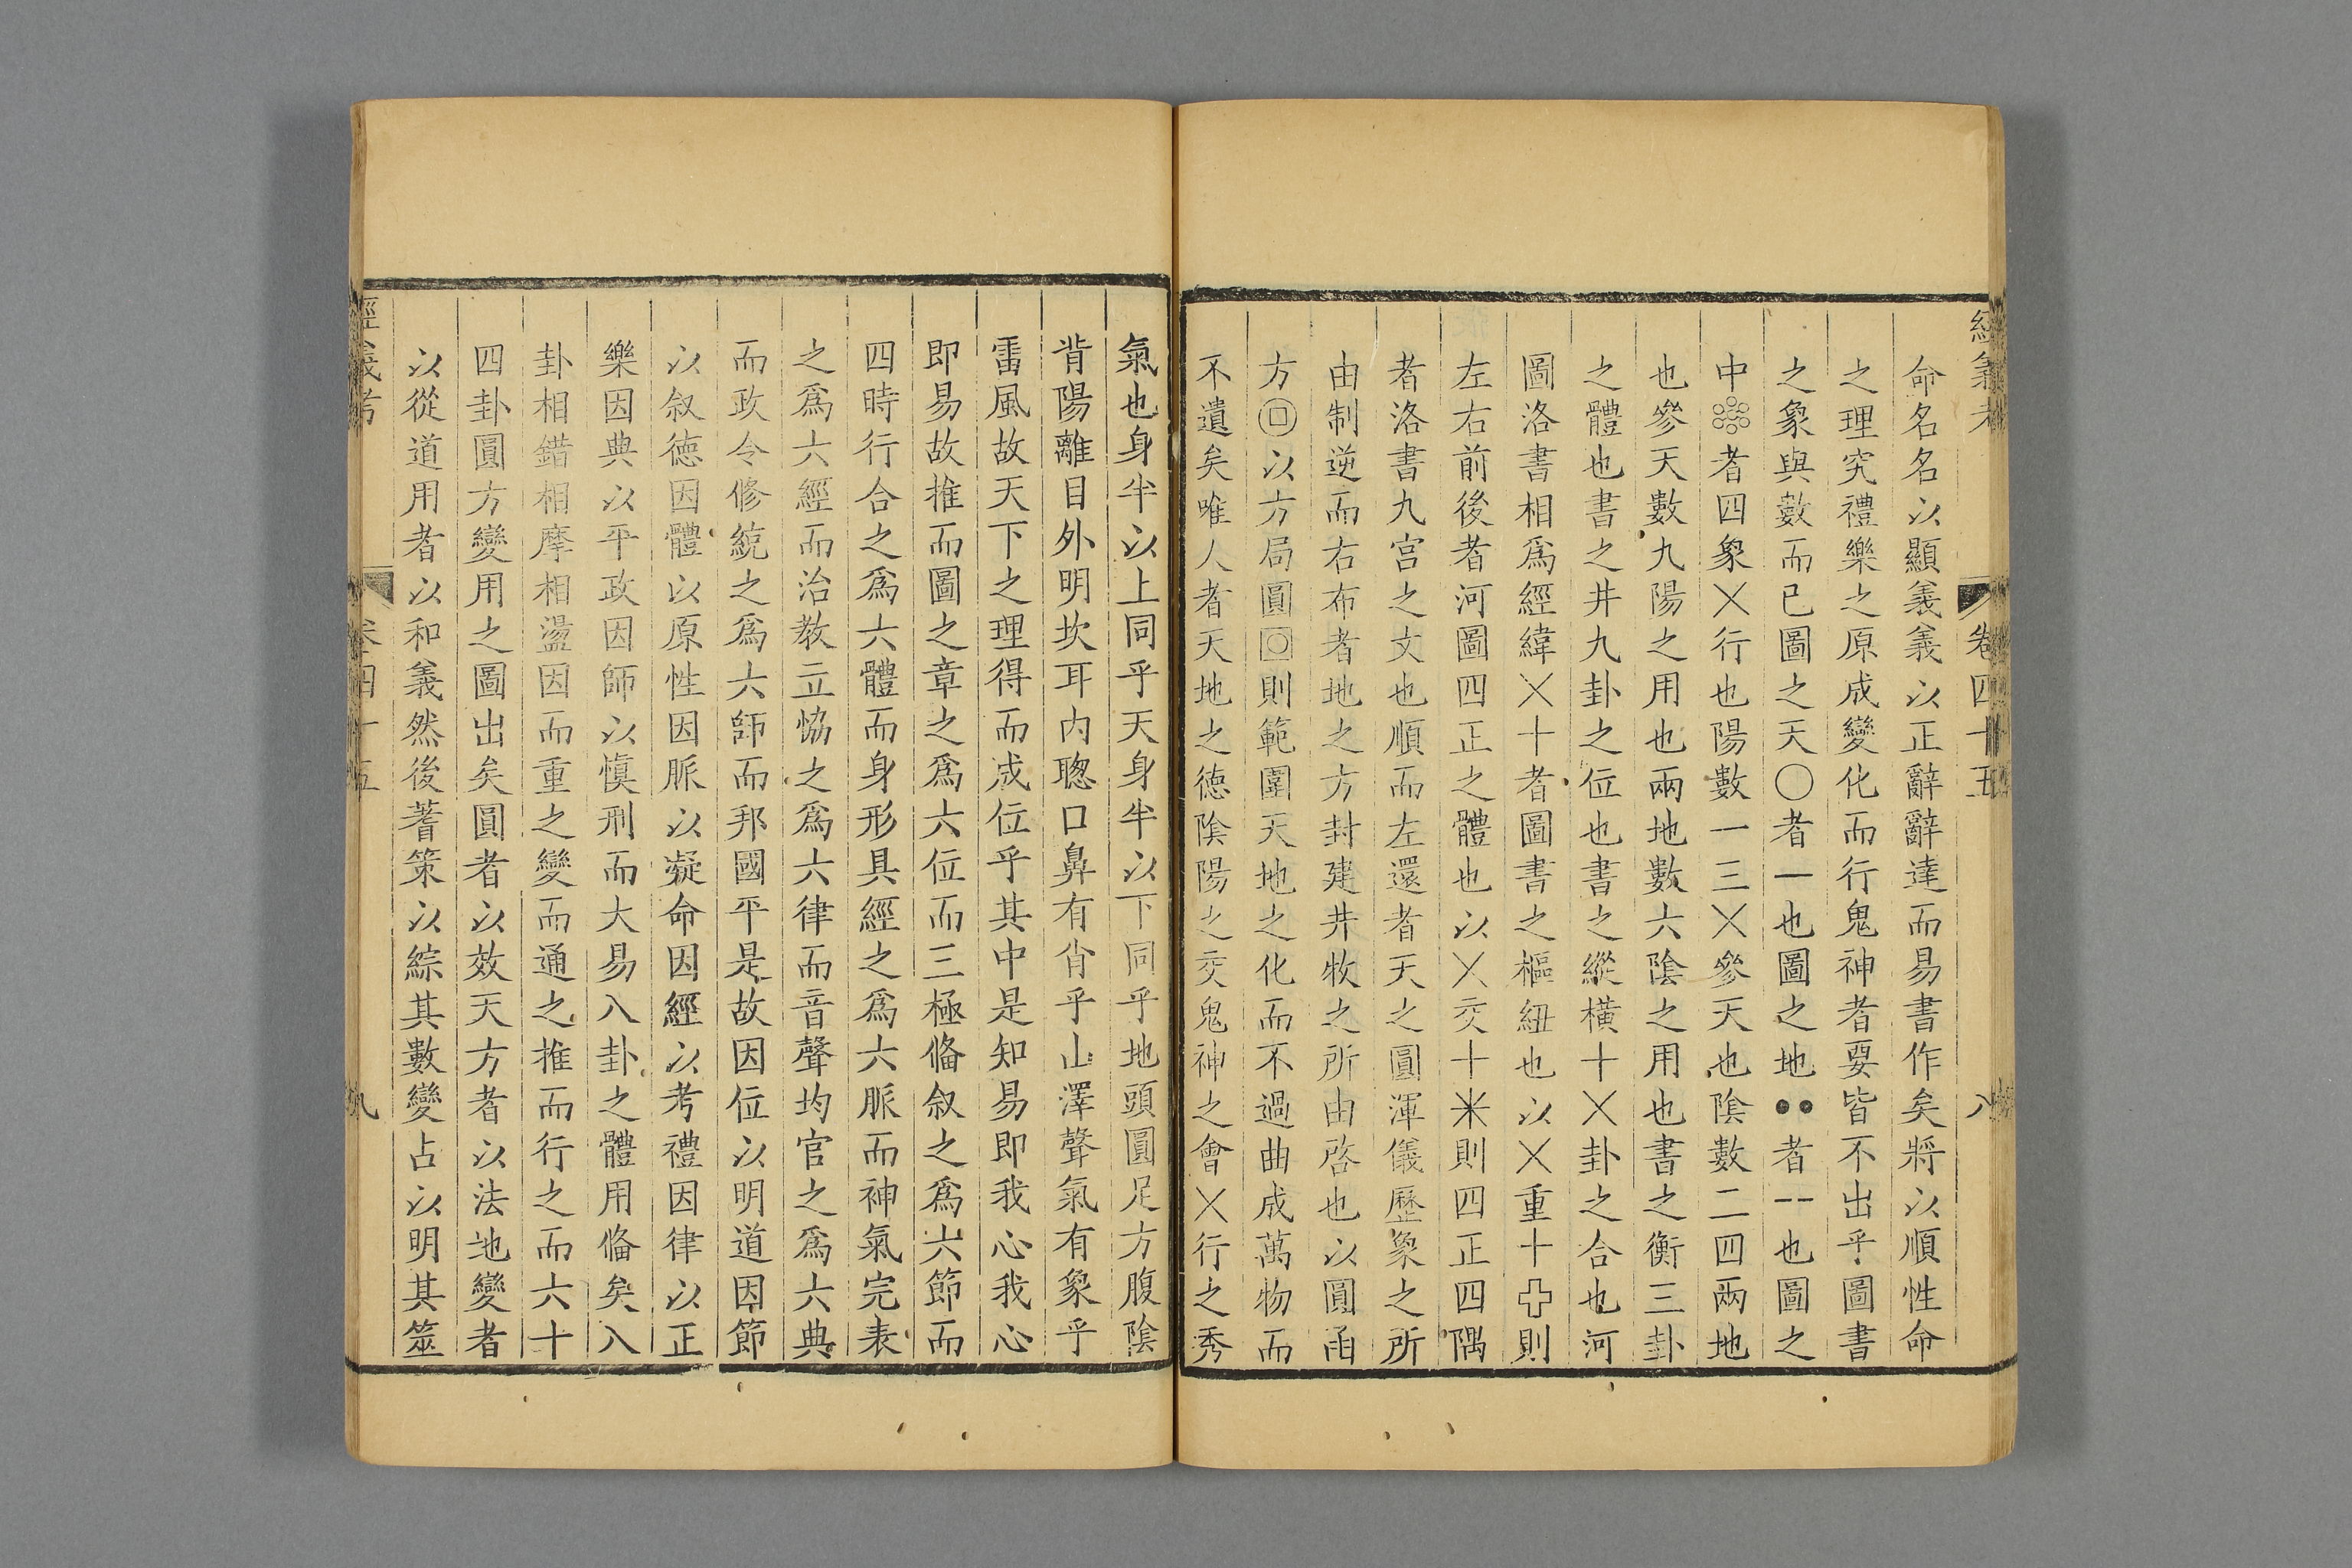 經義考 卷四十五 八
命名名以顯義義以正辭辭達而易書作矣將以順性命
之理究禮樂之原成變化而行鬼神者要皆不出乎圖書
之象與數而已圖之天〇者一也圖之地●●者--也圖之
中者四象㐅行也陽數一三㐅參天也陰數二四兩地
也參天數九陽之用也兩地數六陰之用也書之衡三卦
之體也書之井九卦之位也書之縱橫十㐅卦之合也河
圖洛書相爲經緯㐅十者圖書之樞紐也以㐅重十則
左右前後者河圖四正之體也以㐅交十則四正四隅
者洛書九宮之文也順而左還者天之圓渾儀歷象之所
由制逆而右布者地之方封建井牧之所由啓也以圓函
方以方局圓則範圍天地之化而不過曲成萬物而
不遺矣唯人者天地之德陰陽之交鬼神之會㐅行之秀
氣也身半以上同乎天身半以下同乎地頭圓足方腹陰
背陽離目外明坎耳內聰口鼻有肖乎山澤聲氣有象乎
雷風故天下之理得而成位乎其中是知易即我心我心
即易故推而圖之章之爲六位而三極備叙之爲六節而
四時行合之爲六體而身形具經之爲六脈而神氣完表
之爲六經而治教立協之爲六律而音聲均官之爲六典
而政令修統之爲六師而邦國平是故因位以明道因節
以叙德因體以原性因脈以凝命因經以考禮因律以正
樂因典以平政因師以慎刑而大易八卦之體用備矣八
卦相錯相摩相盪因而重之變而通之推而行之而六十
四卦圓方變用之圖出矣圓者以效天方者以法地變者
以從道用者以和義然後蓍策以綜其數變占以明其筮
經義考 卷四十五 九